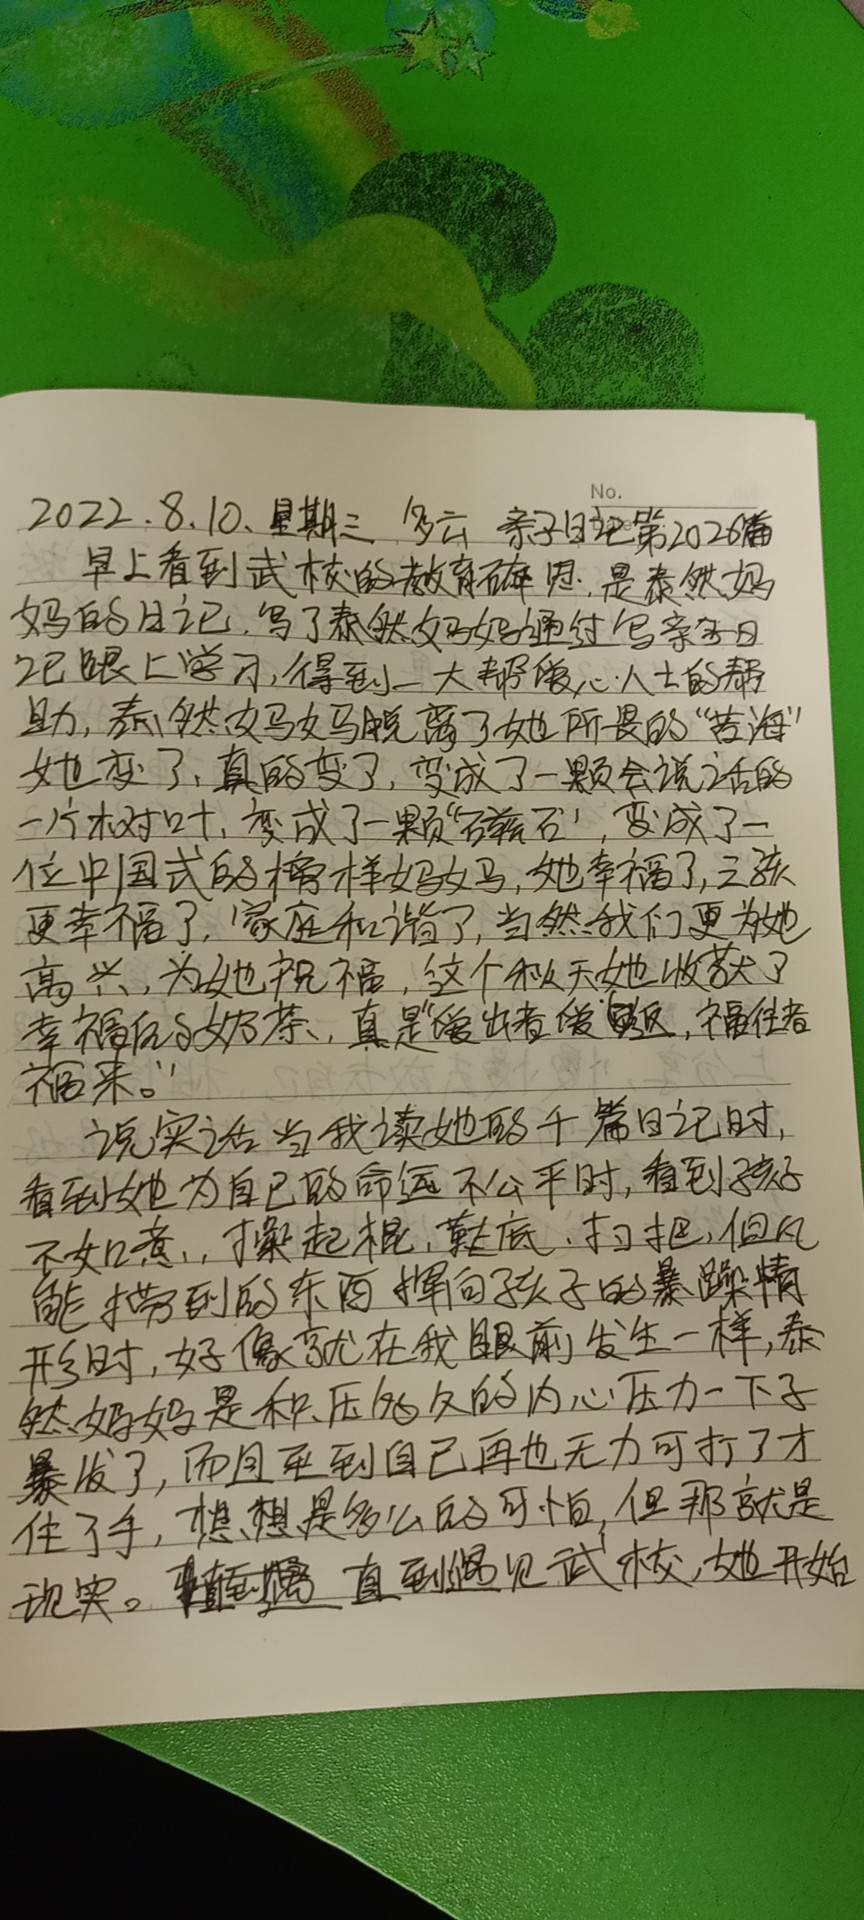 No.
2022.8.10、星期三 多云 亲子日记第2026篇
早上看到武校的教育碎思，是泰然妈
妈的日记，写了泰然妈妈通过写亲子日
记跟上学习，得到一大帮爱心人士的帮
助，泰然妈妈脱离了她所畏的“苦海”
她变了、真的变了，变成了一颗会说话的
一片树叶，变成了一颗“磁石”，变成了一
位中国式的榜样妈妈，她幸福了，三孩
更幸福了，家庭和谐了，当然我们更为她
高兴，为她祝福，这个秋天她收获了
幸福的奶茶，真是“爱出者爱返，福往者
福来。”
说实话当我读她的千篇日记时，
看到她为自己的命运不公平时，看到孩子
不如意，操起棍、鞋底、扫把，但凡
能捞到的东西挥向孩子的暴躁情
形时，好像就在我眼前发生一样，泰
然妈妈是积压多久的内心压力一下子
暴发了，而且至到自己再也无力可打了才
住了手，想想是多么的可怕，但那就是
现实。直到遇见武校，她开始